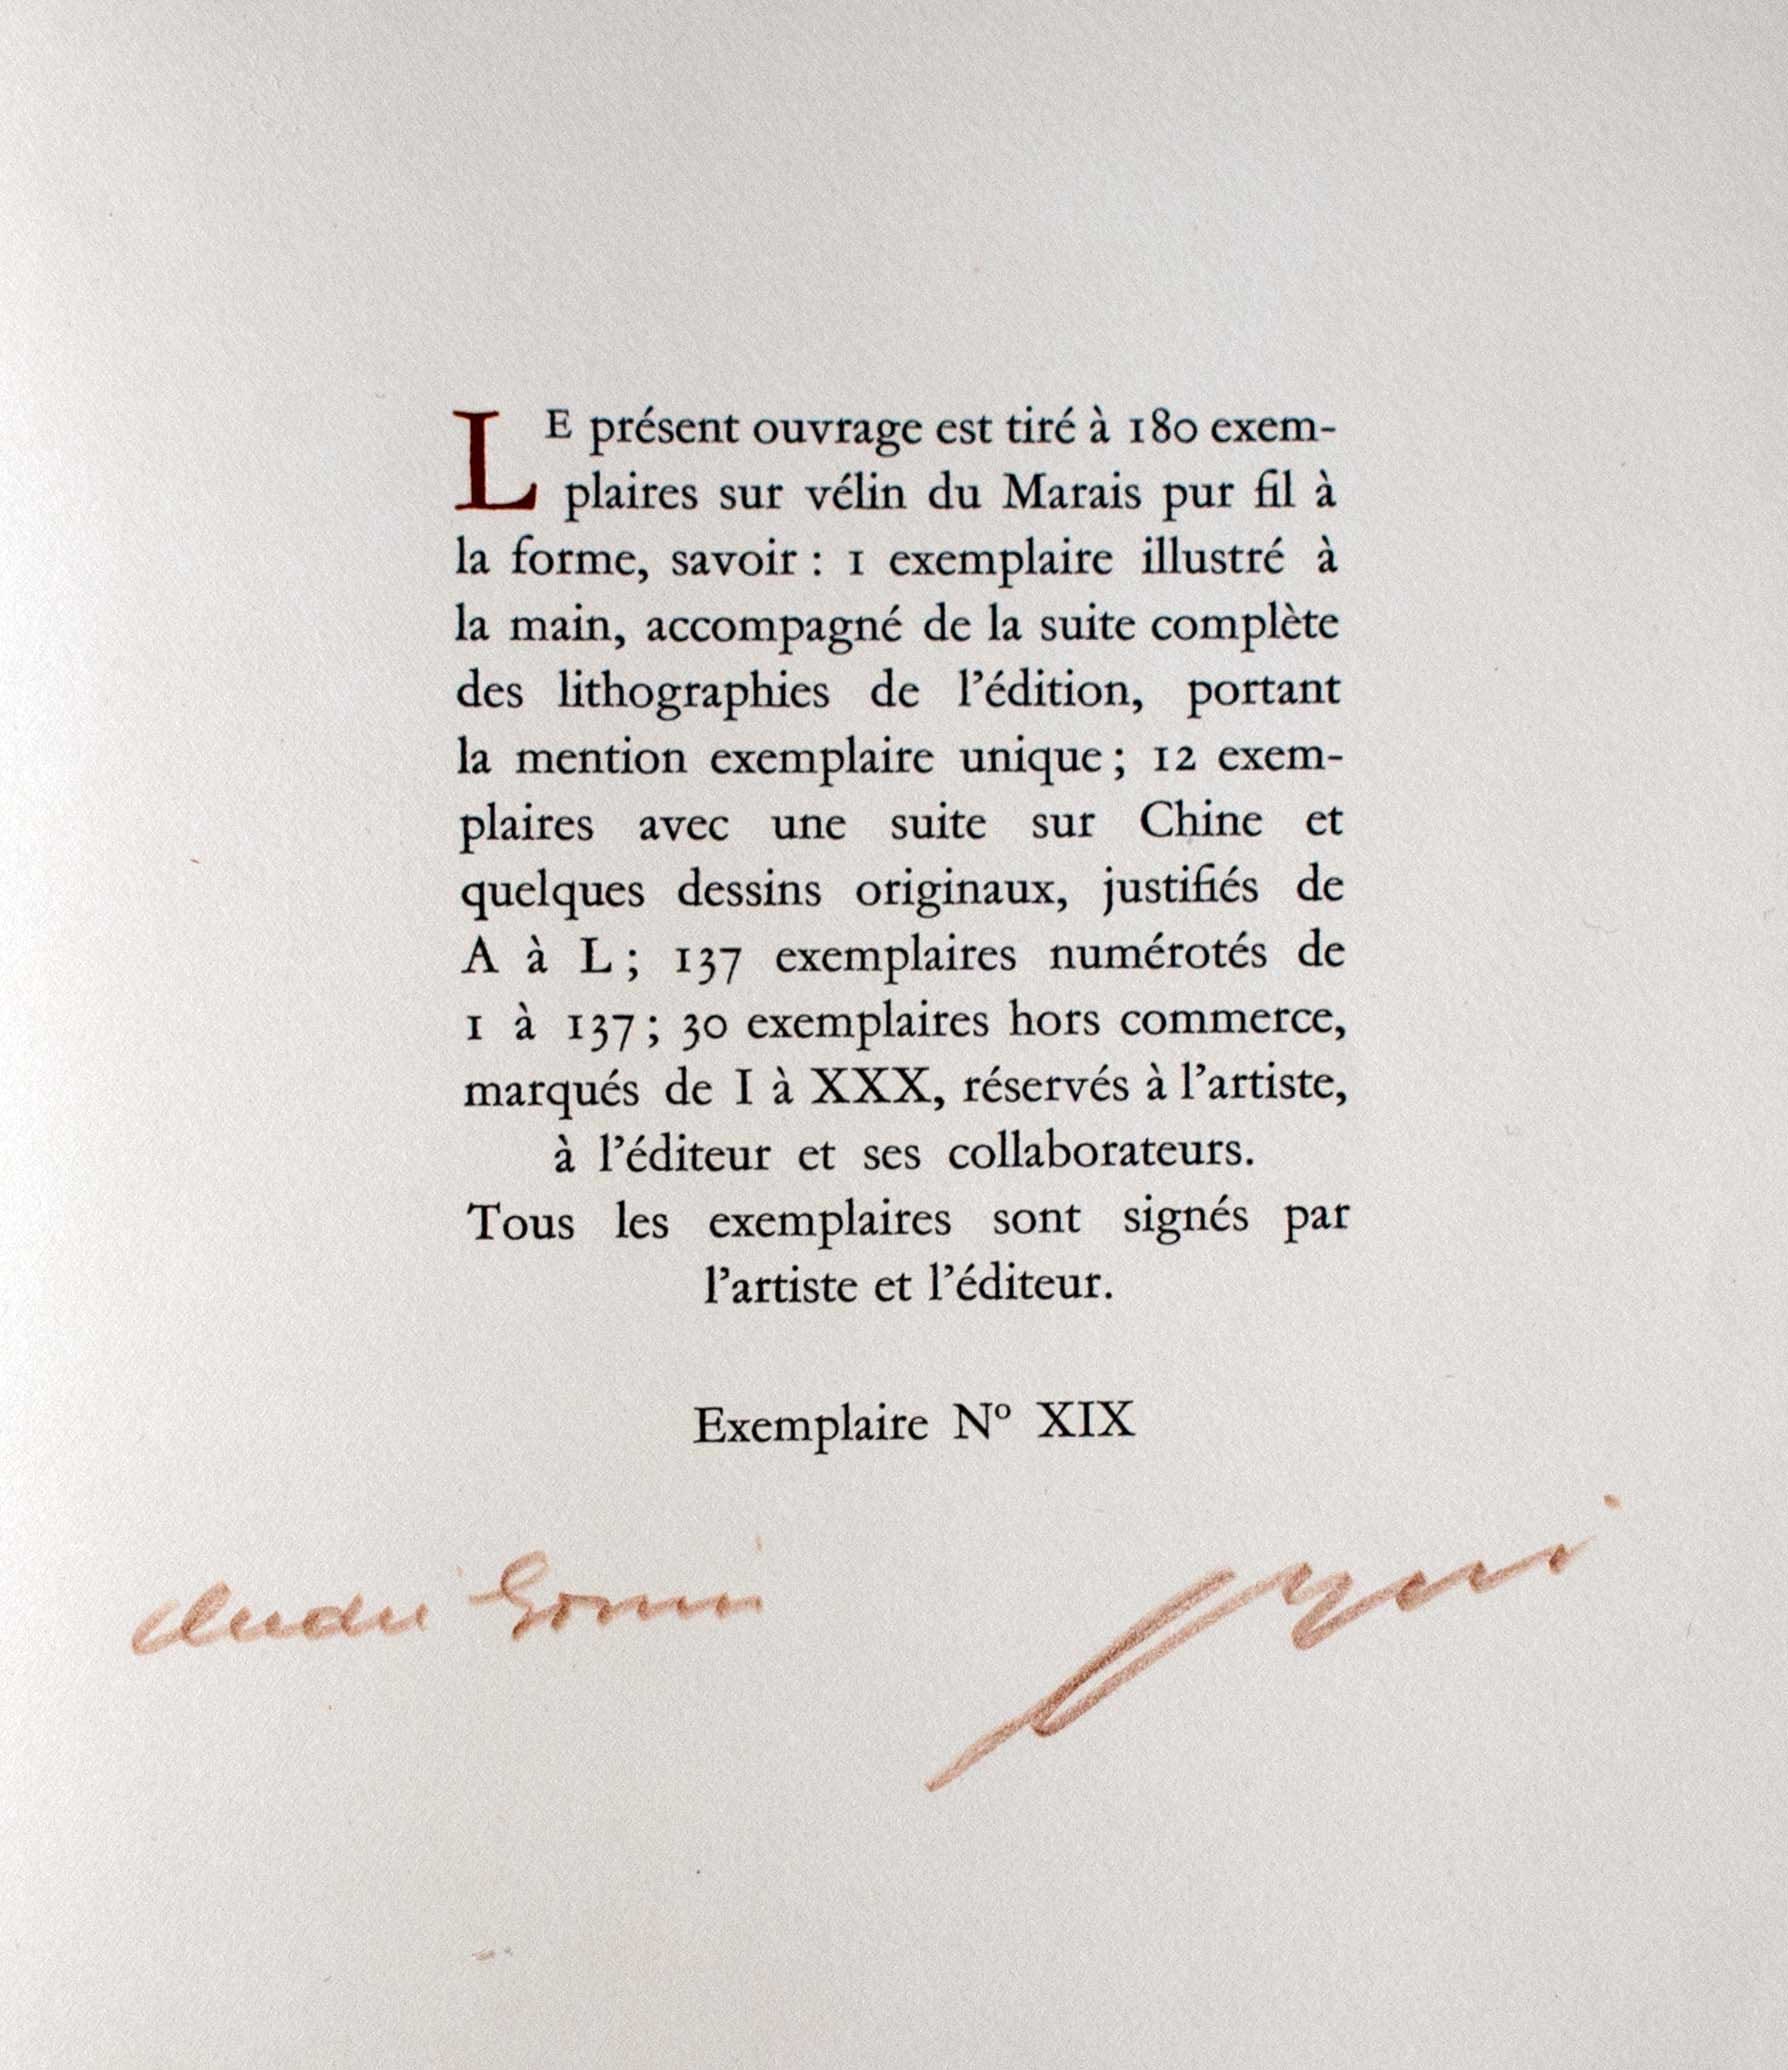 LE présent ouvrage est tiré à 180 exem-
plaires sur vélin du Marais pur fil à
la forme, savoir : 1 exemplaire illustré à
la main, accompagné de la suite complète
des lithographies de l’édition, portant
la mention exemplaire unique ; 12 exem-
plaires avec une suite sur Chine et
quelques dessins originaux, justifiés de
A à L ; 137 exemplaires numérotés de
1 à 137 ; 30 exemplaires hors commerce,
marqués de I à XXX, réservés à l’artiste,
à l’éditeur et ses collaborateurs.
Tous les exemplaires sont signés par
l’artiste et l’éditeur.
Exemplaire Nº XIX
André Gonin